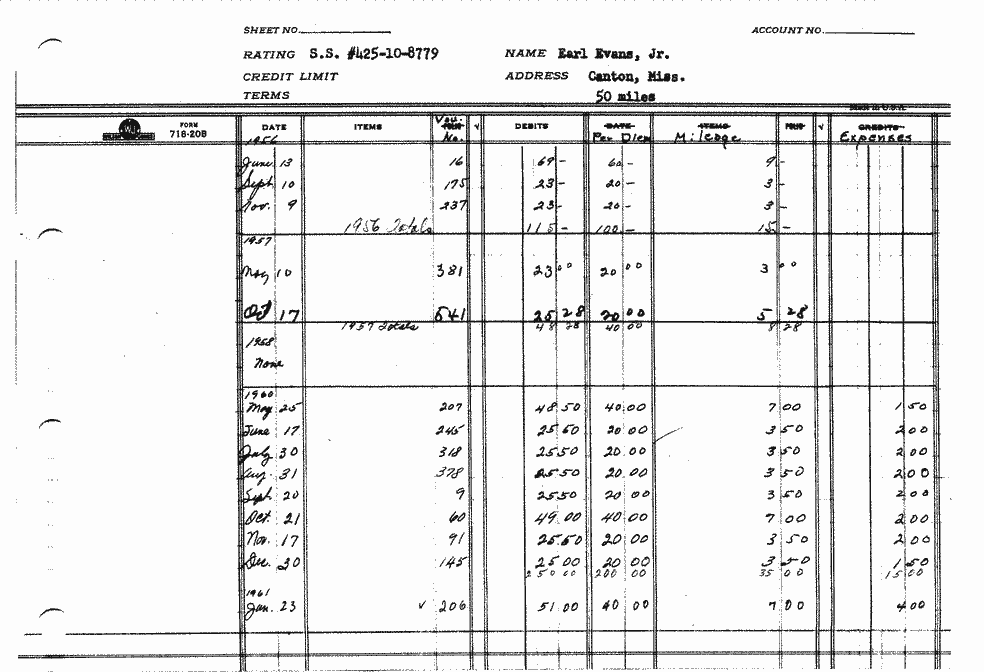 SHEET NO. ACCOUNT NO.
RATING S.S. #425-10-8779 NAME Earl Evans, Jr.
CREDIT LIMIT ADDRESS Canton, Miss.
TERMS 50 miles
FORM 718-20B DATE ITEMS Vou. No. √ DEBITS Per Diem Mileage √ Expenses
1956
June 13 16 69 - 60 - 9 -
Sept 10 175 23 - 20 - 3 -
Nov. 9 237 23 - 20 - 3 -
1956 Totals 115 - 100 - 15 -
1957
May 10 381 23 00 20 00 3 00
Oct 17 541 25 28 20 00 5 28
1957 Totals 48 28 40 00 8 28
1958
None
1960
May 25 207 48 50 40 00 7 00 1 50
June 17 245 25 50 20 00 3 50 2 00
July 30 318 25 50 20 00 3 50 2 00
Aug. 31 378 25 50 20 00 3 50 2 00
Sept. 20 9 25 50 20 00 3 50 2 00
Oct. 21 60 49 00 40 00 7 00 2 00
Nov. 17 91 25 50 20 00 3 50 2 00
Dec. 30 145 25 00 20 00 3 50 1 50
250 00 200 00 35 00 15 00
1961
Jan. 23 √ 206 51 00 40 00 7 00 4 00